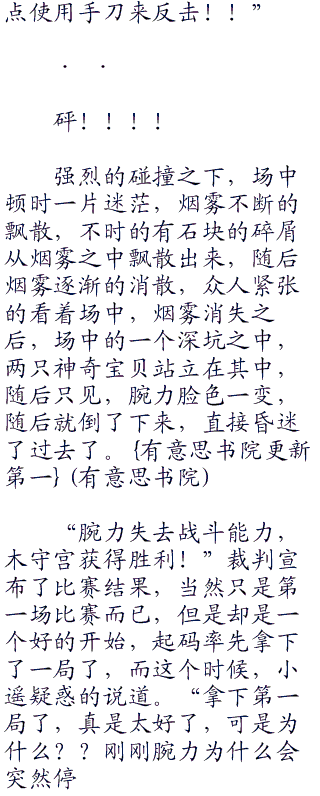 点使用手刀来反击！！”
． ．
砰！！！！
强烈的碰撞之下，场中
顿时一片迷茫，烟雾不断的
飘散，不时的有石块的碎屑
从烟雾之中飘散出来，随后
烟雾逐渐的消散，众人紧张
的看着场中，烟雾消失之
后，场中的一个深坑之中，
两只神奇宝贝站立在其中，
随后只见，腕力脸色一变，
随后就倒了下来，直接昏迷
了过去了。{有意思书院更新
第一} (有意思书院)
“腕力失去战斗能力，
木守宫获得胜利！”裁判宣
布了比赛结果，当然只是第
一场比赛而已，但是却是一
个好的开始，起码率先拿下
了一局了，而这个时候，小
遥疑惑的说道。“拿下第一
局了，真是太好了，可是为
什么？？刚刚腕力为什么会
突然停